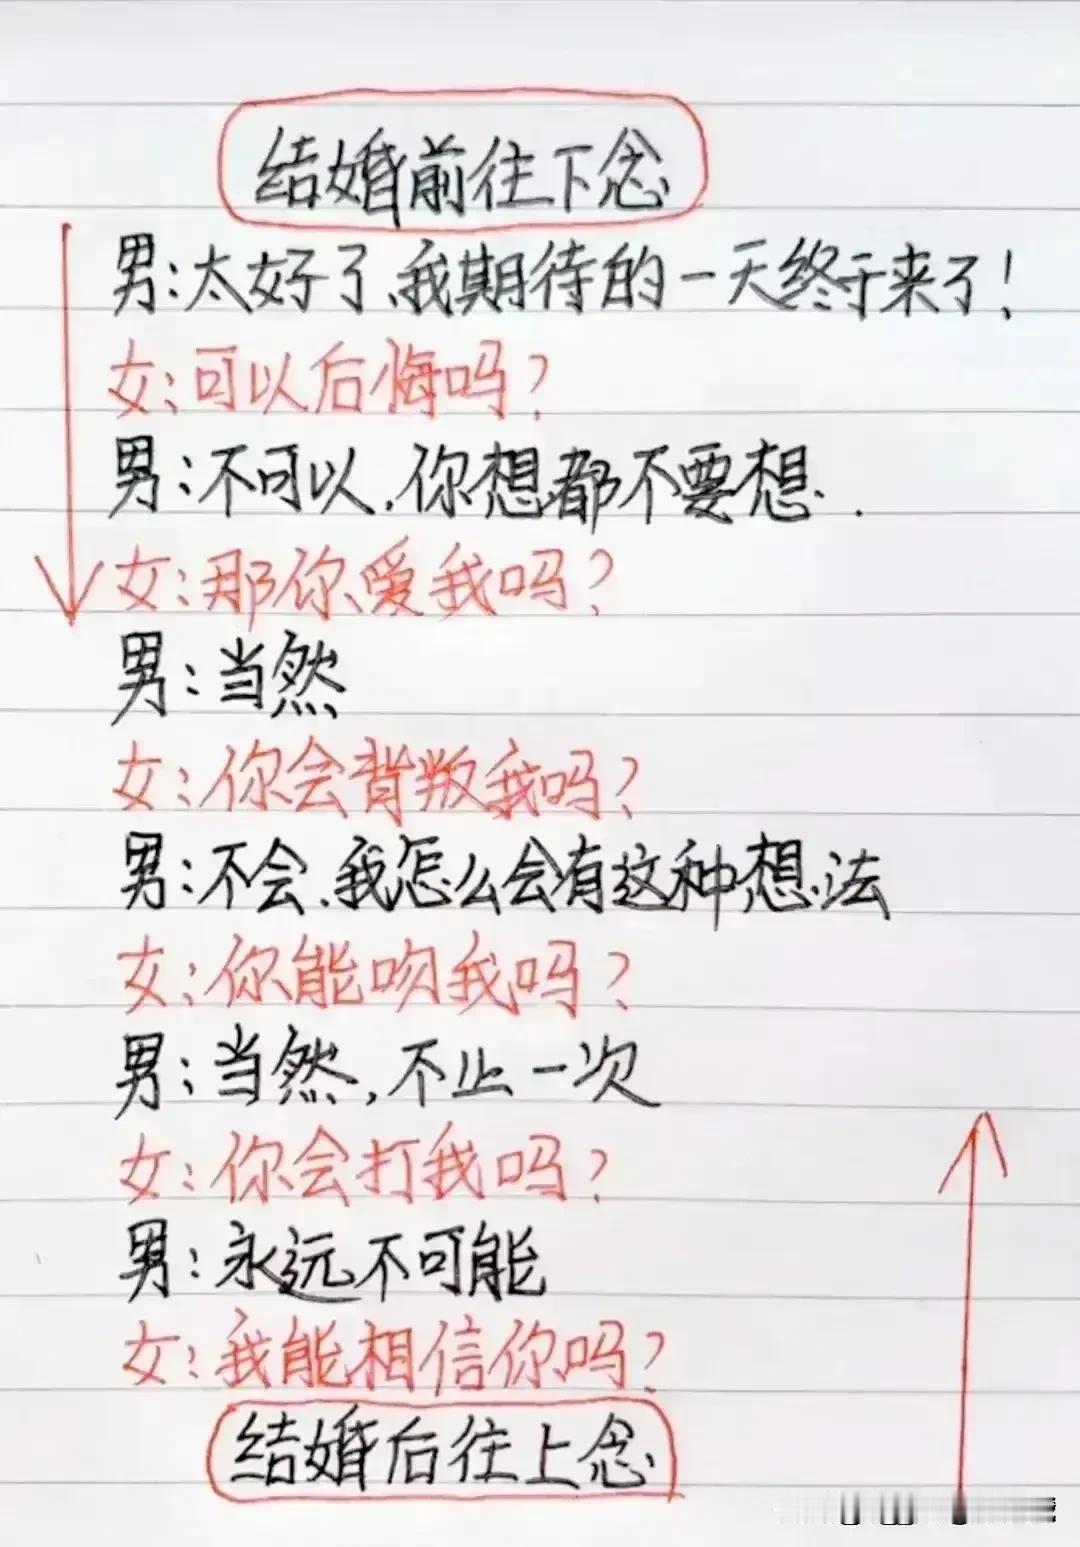 结婚前往下念
男:太好了、我期待的一天终于来了!
女:可以后悔吗?
男:不可以,你想都不要想.
女:那你爱我吗?
男:当然
女:你会背叛我吗?
男:不会、我怎么会有这种想法
女:你能吻我吗?
男:当然,不止一次
女:你会打我吗?
男:永远不可能
女:我能相信你吗?
结婚后往上念